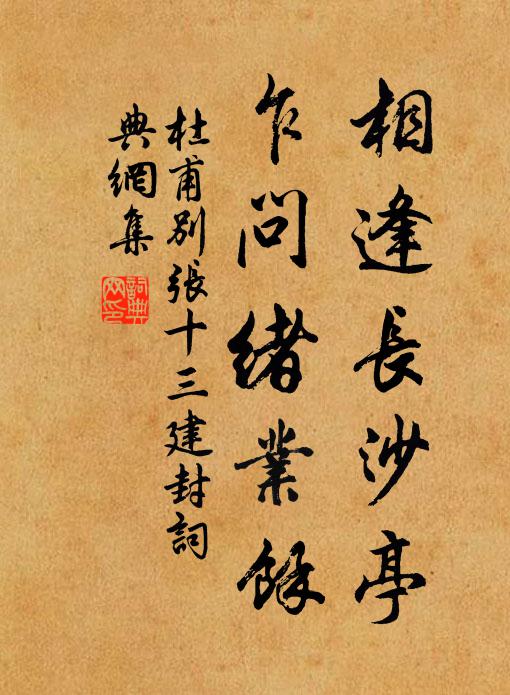 相逢長沙亭
乍問緒業餘
杜甫別張十三建封詞
典網集
詞典
网印